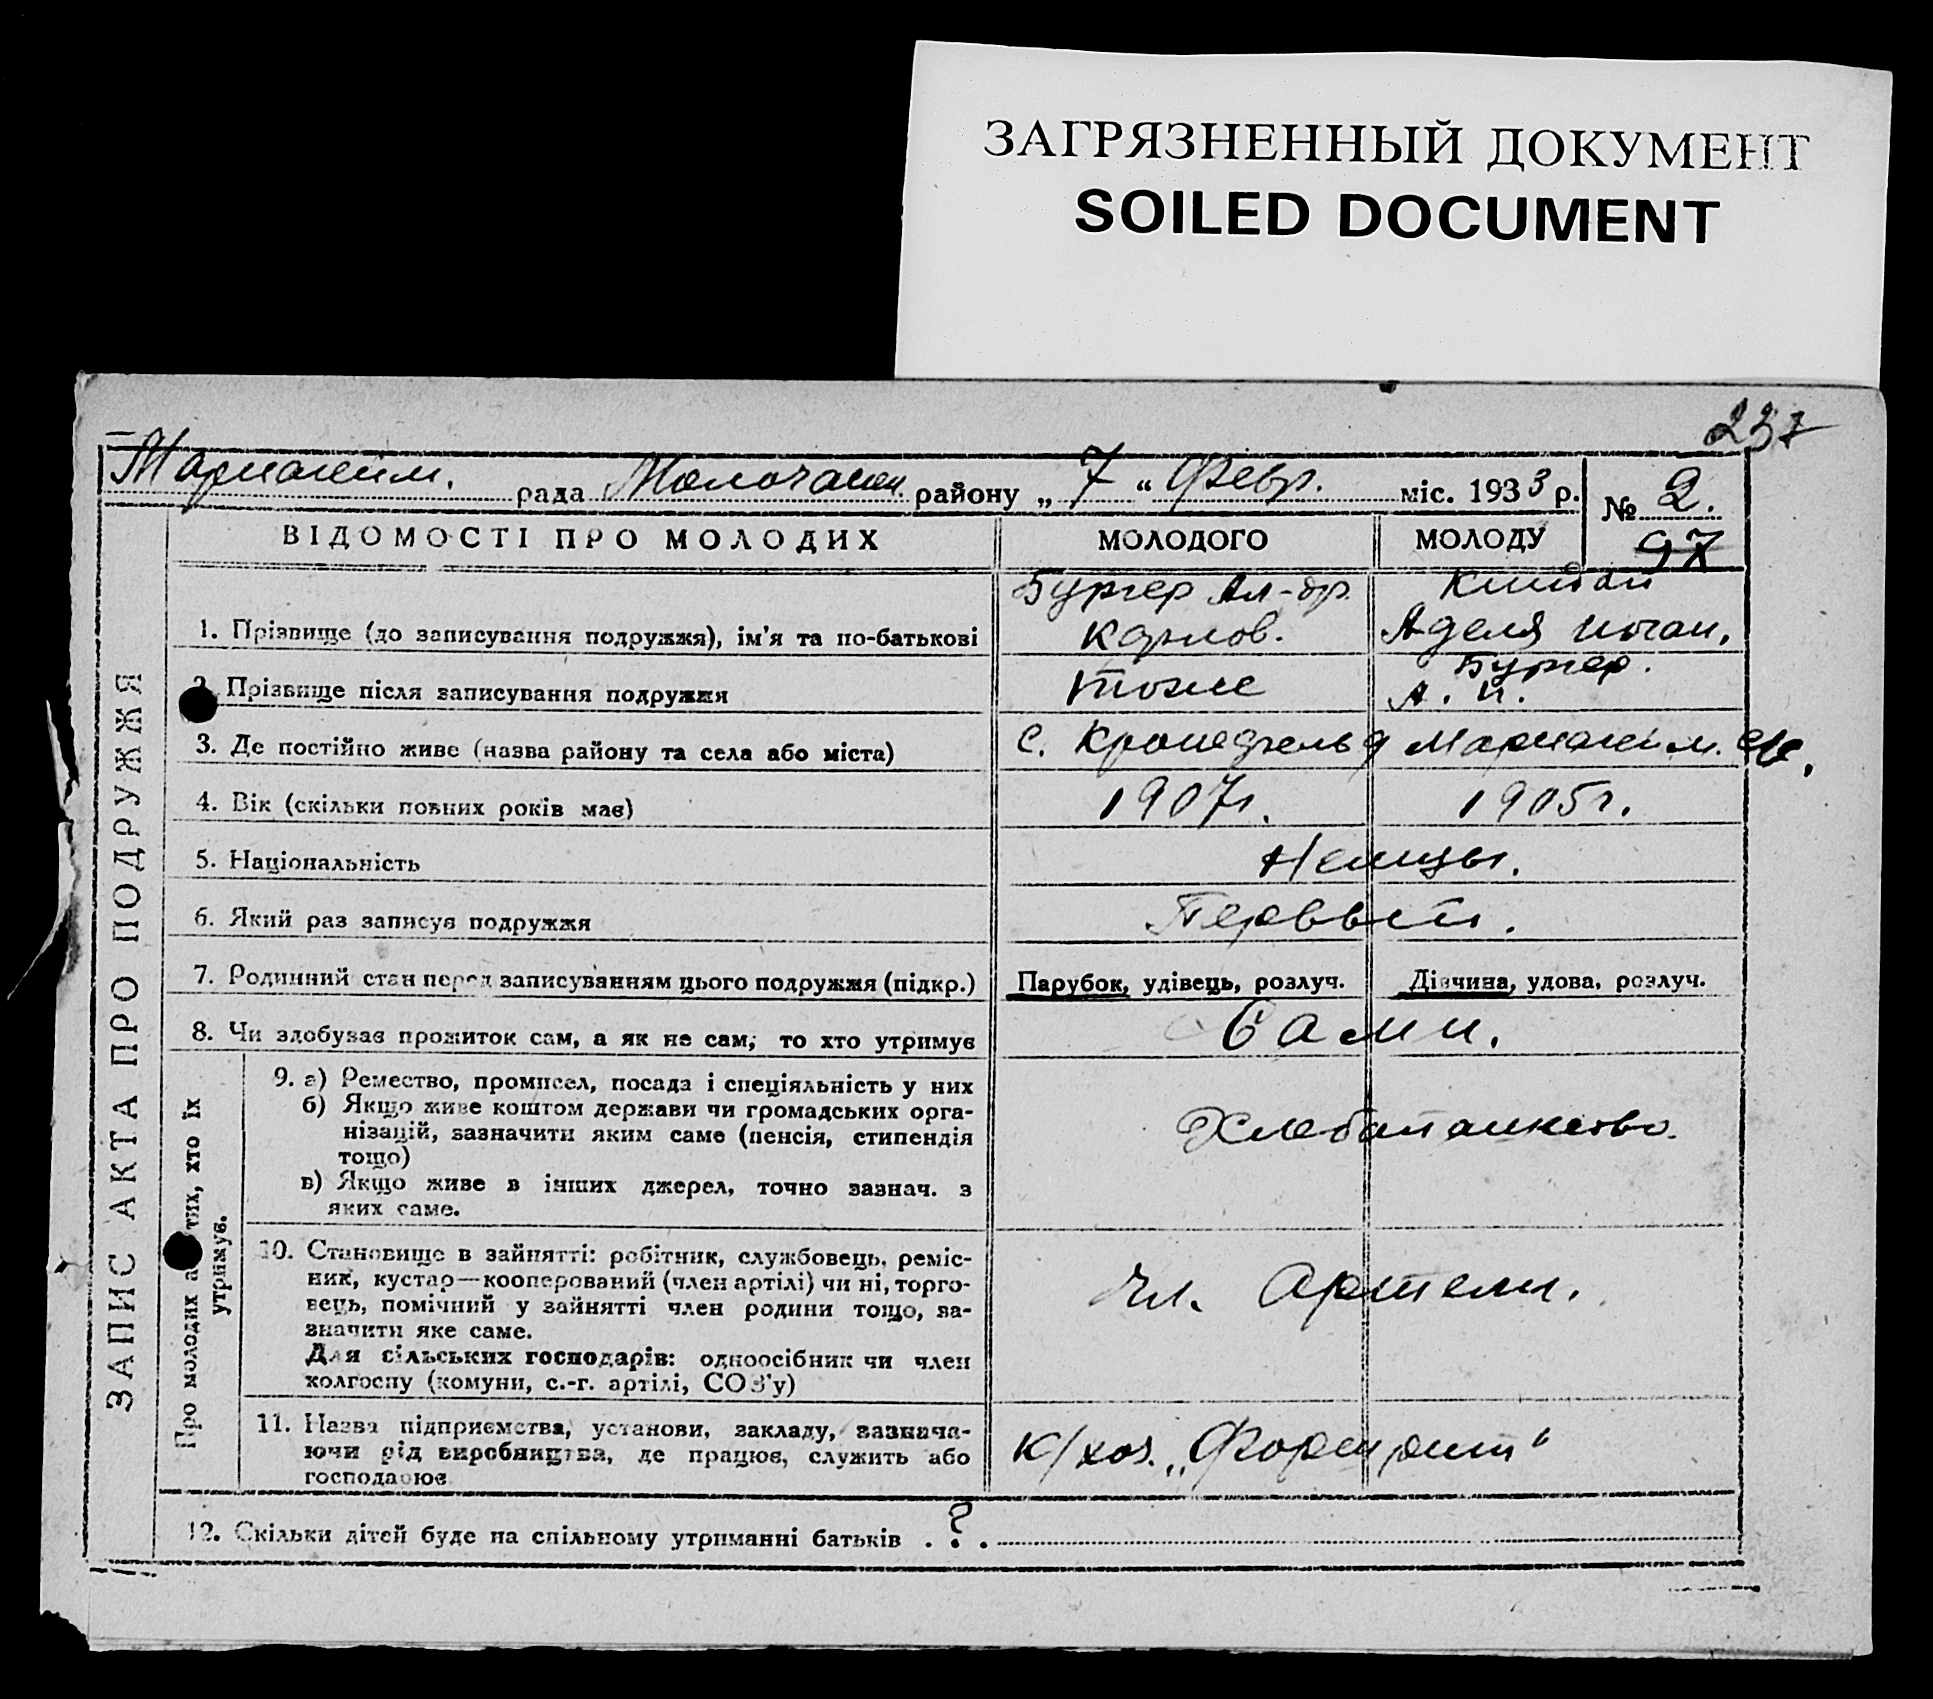 ЗАГРЯЗНЕННЫЙ ДОКУМЕНТ
SOILED DOCUMENT
237
Мариангейм. рада Молочанск. району „ 7 “ Февр. міс. 1933 р. № 2.
97
ЗАПИС АКТА ПРО ПОДРУЖЖЯ
ВІДОМОСТІ ПРО МОЛОДИХ МОЛОДОГО МОЛОДУ
1. Прізвище (до записування подружжя), ім'я та по-батькові Бургер Ал-др. Карлов. Аделя Иоган.
2. Прізвище після записування подружжя тоже Бургер. А. И.
3. Де постійно живе (назва району та села або міста) с. Мариангейм.
4. Вік (скільки повних років має) 1907г. 1905г.
5. Національність Немцы.
6. Який раз записує подружжя Первый.
7. Родинний стан перед записуванням цього подружжя (підкр.) Парубок, удівець, розлуч. Дівчина, удова, розлуч.
8. Чи здобував прожиток сам, а як не сам, то хто утримує Сами.
Про молодих а тих, хто їх
утримує.
9. а) Ремество, промисел, посада і спеціяльність у них
б) Якщо живе коштом держави чи громадських орга-
нізацій, зазначити яким саме (пенсія, стипендія
тощо)
в) Якщо живе в інших джерел, точно зазнач. з
яких саме.
Хлебопашество.
10. Становище в зайнятті: робітник, службовець, реміс-
ник, кустар—кооперований (член артілі) чи ні, торго-
вець, помічний у зайнятті член родини тощо, за-
значити яке саме.
Для сільських господарів: одноосібник чи член
колгоспу (комуни, с.-г. артілі, СОЗ'у)
Чл. Артели.
11. Назва підприємства, установи, закладу, зазнача-
ючи рід виробництва, де працює, служить або
господарює
к/хоз. „Форшрит“
12. Скільки дітей буде на спільному утриманні батьків . ? .